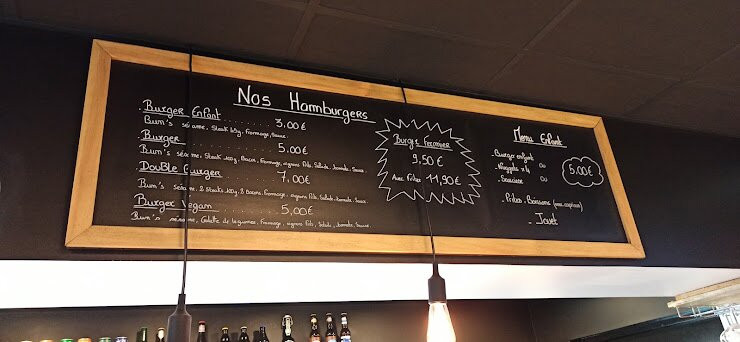 Nos Hamburgers
Burger Enfant ........ 3,00€
Bum's sésame, Steak 45g, Fromage, Sauce.
Burger ........ 5,00€
Bum's sésame, Steak 100g, Bacon, Fromage, oignons frits, Salade, tomate, Sauce.
Double Burger ........ 7,00€
Bum's Sésame, 2 Steaks 100g, 2 Bacons, Fromage, oignons frits, Salade, tomate, Sauce.
Burger Vegan ........ 5,00€
Bum's sésame, Galette de légumes, Fromage, oignons frits, Salade, tomate, Sauce.
Burger Fermier
9,50€
Avec Frites 11,90€
Menu Enfant
- Burger enfant ou
- Nuggets x4 ou
- Saucisse
5,00€
- Frites - Boissons
- Jouet